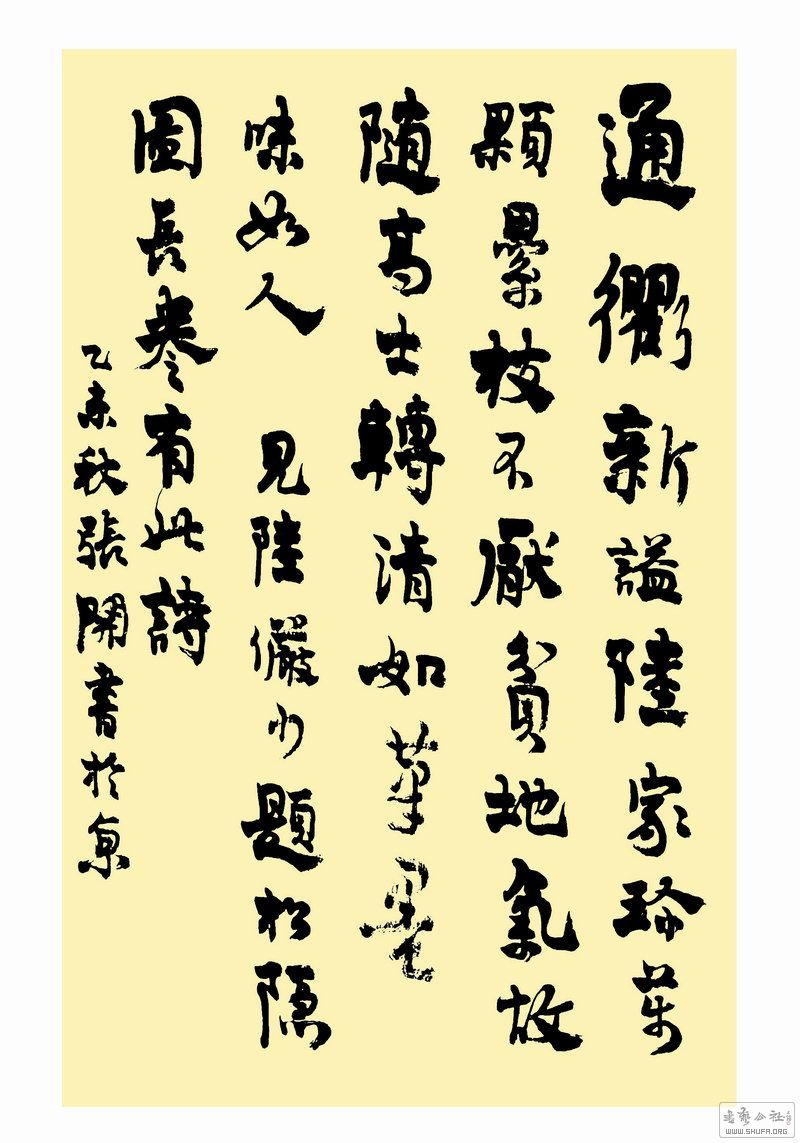 通衢新謚陸家珍萬
顆纍枝不厭貧地氣故
隨高士轉清如筆墨
味如人 見陸儼少題松隱
圖長卷有此詩
乙亥秋張書於京
書藝公社
WWW.SHUFA.ORG